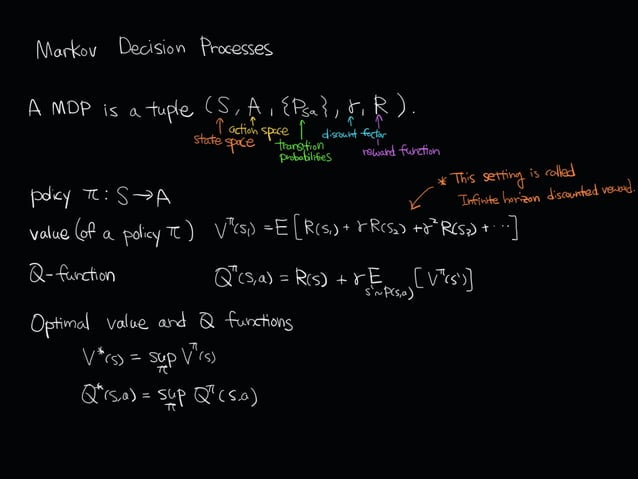 Markov Decision Processes
A MDP is a tuple (S, A, {Psa}, γ, R).
state space
action space
transition
probabilities
discount factor
reward function
* This setting is called
Infinite horizon discounted reward.
policy π: S → A
value (of a policy π) V^π(s₁) = E[R(s₁) + γR(s₂) + γ²R(s₃) + ···]
Q-function Q^π(s,a) = R(s) + γE_{s'~P(s,a)}[V^π(s')]
Optimal value and Q functions
V*(s) = sup_π V^π(s)
Q*(s,a) = sup_π Q^π(s,a)